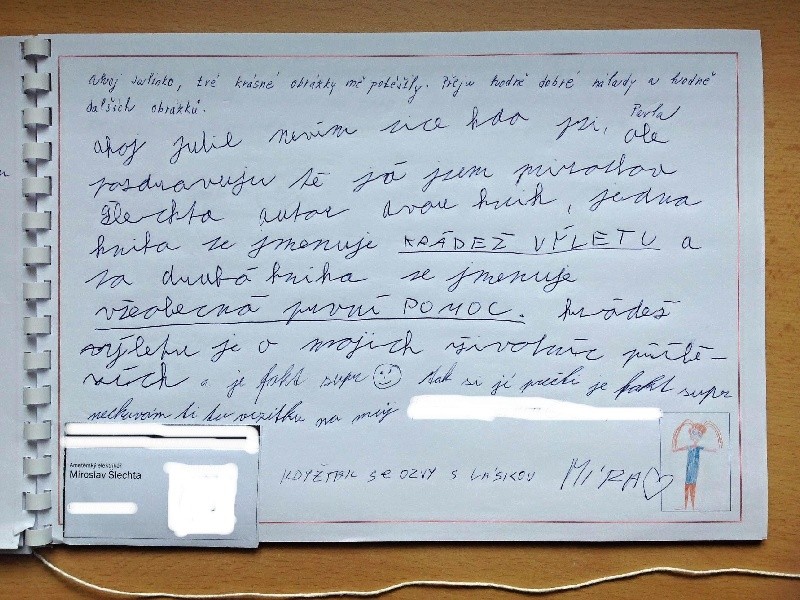 Ahoj Julinko, tvé krásné obrázky mě potěšily. Přeju hodně dobré nálady a hodně
dalších obrázků. Pavla
ahoj julie nevím sice kdo jsi, ale
pozdravuju tě já jsem miroslav
šlechta autor dvou knih, jedna
kniha se jmenuje KRÁDEŽ VÝLETU a
ta druhá kniha se jmenuje
všeobecná první POMOC. krádež
výletu je o mojich životníc příbě-
zích a je fakt supr tak si jí přečti je fakt supr
nechávám ti tu vizitku na můj
Miroslav Šlechta
KDYŽTAK SE OZVY S LÁSKOU MÍRA